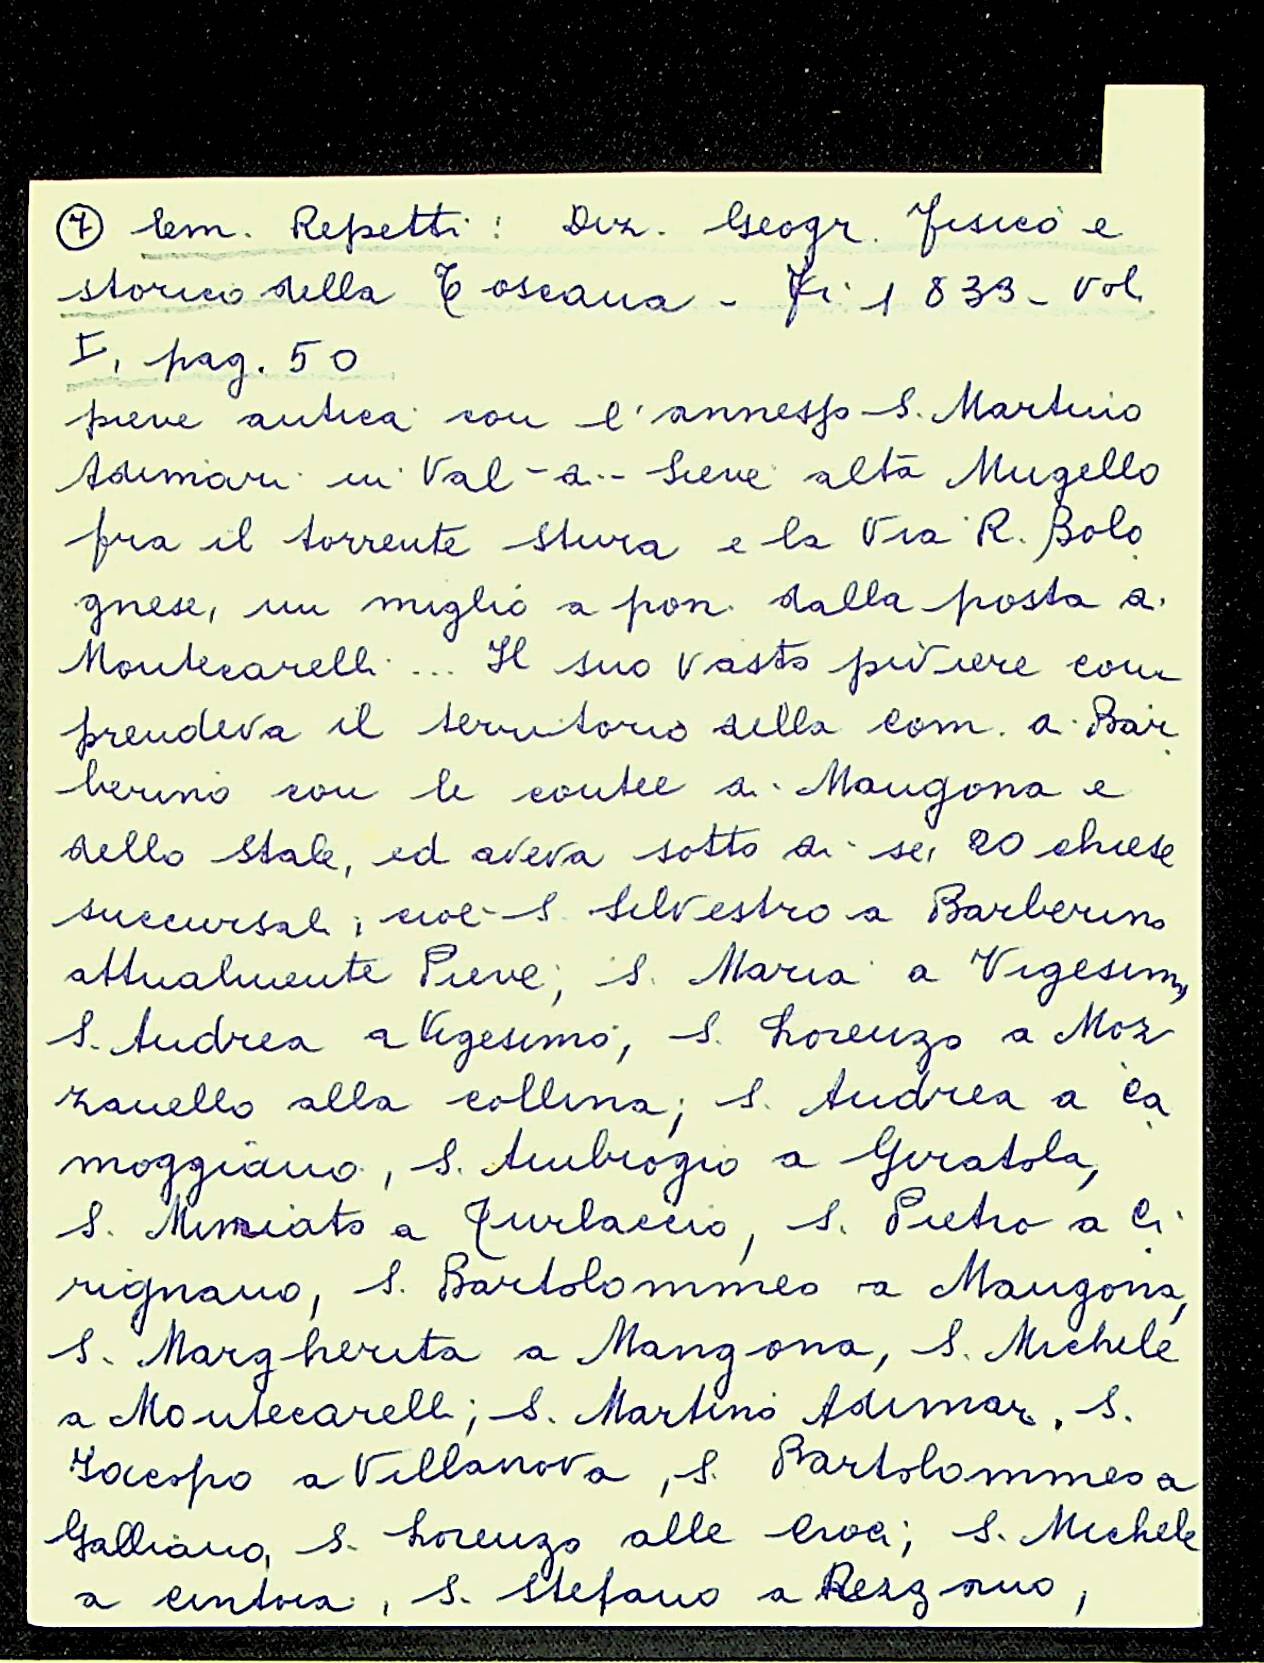 ⑦ Em. Repetti: Diz. Geogr. fisico e
storico della Toscana - Fi. 1833 - Vol.
I, pag. 50
pieve antica con l'annesso S. Martino
Adimari in Val - di - Sieve alta Mugello
fra il torrente Stura e la Via R. Bolo
gnese, un miglio a pon. dalla posta di
Montecarelli ... Il suo vasto piviere com
prendeva il territorio della com. di Bar
berino con le contee di Mangona e
dello Stale, ed aveva sotto di se, 20 chiese
succursali; cioè S. Silvestro a Barberino
attualmente Pieve; S. Maria a Vigesimo,
S. Andrea a Vigesimo; S. Lorenzo a Moz
zanello alla collina; S. Andrea a Ca
moggiano, S. Ambrogio a Giratola,
S. Miniato a Turlaccio, S. Pietro a Ci
rignano, S. Bartolommeo a Mangona,
S. Margherita a Mangona, S. Michele
a Montecarelli; S. Martino Adimari, S.
Jacopo a Villanova, S. Bartolommeo a
Galliano, S. Lorenzo alle Croci; S. Michele
a Cintoia, S. Stefano a Rezzano,